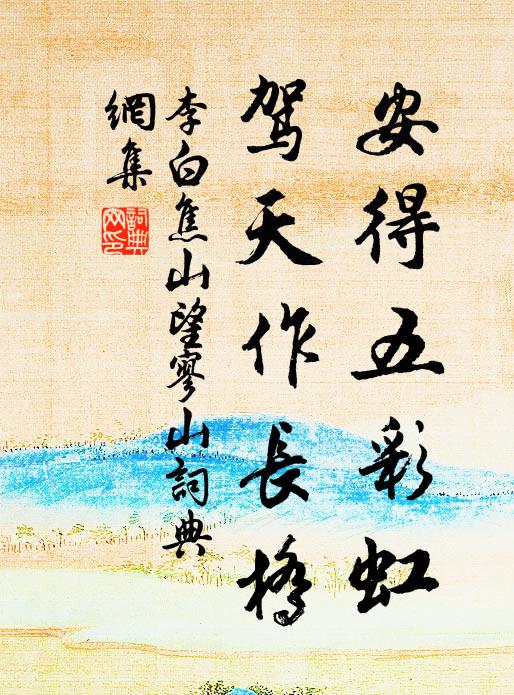 安得五彩虹
駕天作長橋
李白焦山望寥山詞典
網集
詞典
网印